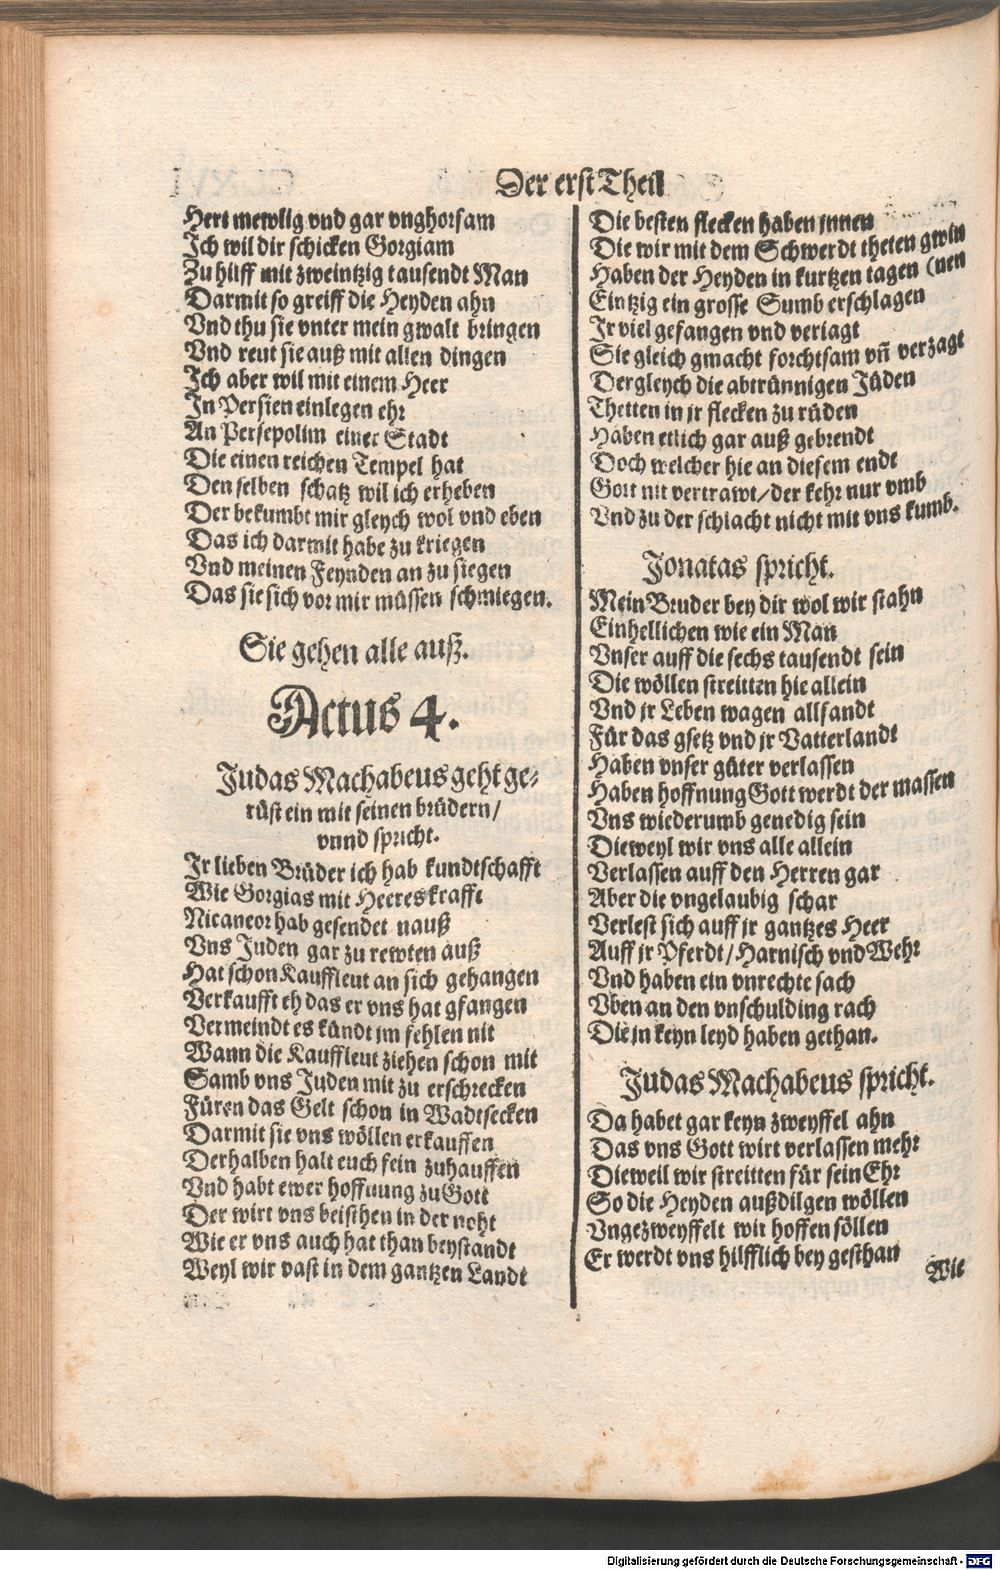 Der erst Theil
Hert mewlig vnd gar vnghorsam
Ich wil dir schicken Gorgiam
Zu hilff mit zweintzig tausendt Man
Darmit so greiff die Heyden ahn
Vnd thu sie vnter mein gwalt bringen
Vnd reut sie auß mit allen dingen
Ich aber wil mit einem Heer
In Persien einlegen ehr
An Persepolim einer Stadt
Die einen reichen Tempel hat
Den selben schatz wil ich erheben
Der bekumbt mir gleych wol vnd eben
Das ich darmit habe zu kriegen
Vnd meinen Feynden an zu siegen
Das sie sich vor mir müssen schmiegen.
Sie gehen alle auß.
Actus 4.
Judas Machabeus geht ge-
rüst ein mit seinen brüdern/
vnnd spricht.
Ir lieben Brüder ich hab kundtschafft
Wie Gorgias mit Heereskrafft
Nicaneor hab gesendet nauß
Vns Juden gar zu rewten auß
Hat schon Kauffleut an sich gehangen
Verkaufft eh das er vns hat gfangen
Vermeindt es kündt jm fehlen nit
Wann die Kauffleut ziehen schon mit
Samb vns Juden mit zu erschrecken
Füren das Gelt schon in Wadtsecken
Darmit sie vns wöllen erkauffen
Derhalben halt euch fein zuhauffen
Vnd habt ewer hoffnung zu Gott
Der wirt vns beisthen in der noht
Wie er vns auch hat than beystandt
Weyl wir vast in dem gantzen Landt
Die besten flecken haben jnnen
Die wir mit dem Schwerdt theten gwin
Haben der Heyden in kurtzen tagen (nen
Eintzig ein grosse Sumb erschlagen
Ir viel gefangen vnd veriagt
Sie gleich gmacht forchtsam vñ verzagt
Dergleych die abtrünnigen Jüden
Thetten in jr flecken zu rüden
Haben etlich gar auß gebrendt
Doch welcher hie an diesem endt
Gott nit vertrawt/der kehr nur vmb
Vnd zu der schlacht nicht mit vns kumb.
Jonatas spricht.
Mein Bruder bey dir wol wir stahn
Einhellichen wie ein Man
Vnser auff die sechs tausendt sein
Die wöllen streitten hie allein
Vnd jr Leben wagen allsandt
Für das gsetz vnd jr Vatterlandt
Haben vnser güter verlassen
Haben hoffnung Gott werdt der massen
Vns wiederumb genedig sein
Dieweyl wir vns alle allein
Verlassen auff den Herren gar
Aber die vngelaubig schar
Verlest sich auff jr gantzes Heer
Auff jr Pferdt/Harnisch vnd Wehr
Vnd haben ein vnrechte sach
Vben an den vnschulding rach
Die jn keyn leyd haben gethan.
Judas Machabeus spricht.
Da habet gar keyn zweyffel ahn
Das vns Gott wirt verlassen mehr
Dieweil wir streitten für sein Ehr
So die Heyden außdilgen wöllen
Vngezweyffelt wir hoffen söllen
Er werdt vns hilfflich bey gesthan
Wie
Digitalisierung gefördert durch die Deutsche Forschungsgemeinschaft - DFG